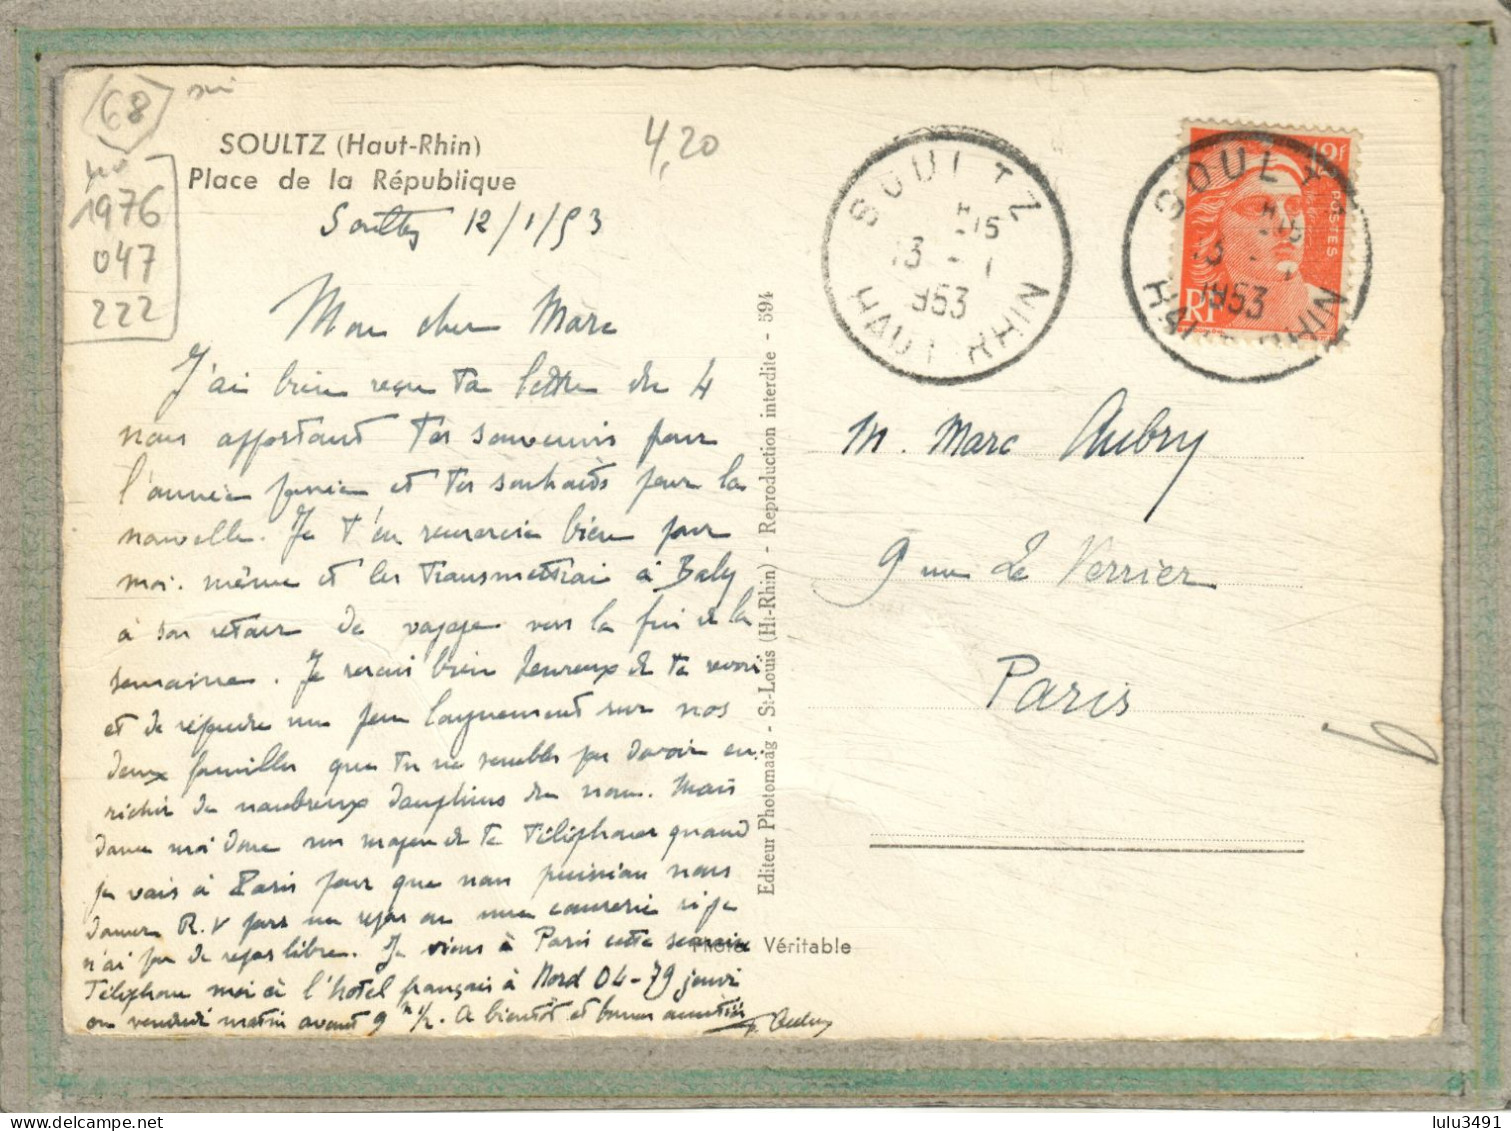 68
1976
047
222
4,20
SOULTZ (Haut-Rhin)
Place de la République
Soultz 12/1/53
Mon cher Marc
J'ai bien reçu ta lettre du 4
nous apportant tes souvenirs pour
l'année passée et tes souhaits pour la
nouvelle. Je t'en remercie bien pour
moi-même et les transmettrai à Baly
à son retour de voyage vers la fin de la
semaine. Je serais bien heureux de te revoir
et de répondre un peu longuement sur nos
deux familles que tu ne sembles pas devoir en-
richir de nombreux dauphins du nom. Mais
donne moi donc un moyen de te téléphoner quand
je vais à Paris pour que nous puissions nous
donner R.V pour un repas ou une causerie si je
n'ai pas de repas libre. Je viens à Paris cette semaine
Téléphone moi à l'hôtel français à Nord 04-79 jeudi
ou vendredi matin avant 9 h 1/2. A bientôt et bonnes amitiés
Aubry
Editeur Photomaag - St-Louis (Ht-Rhin) - Reproduction interdite - 594
Photo Véritable
SOULTZ
13 - 1
1953
HAUT RHIN
SOULTZ
13 - 1
1953
HAUT RHIN
12f
POSTES
RF
M. Marc Aubry
9 rue Le Verrier
Paris
6
lulu3491